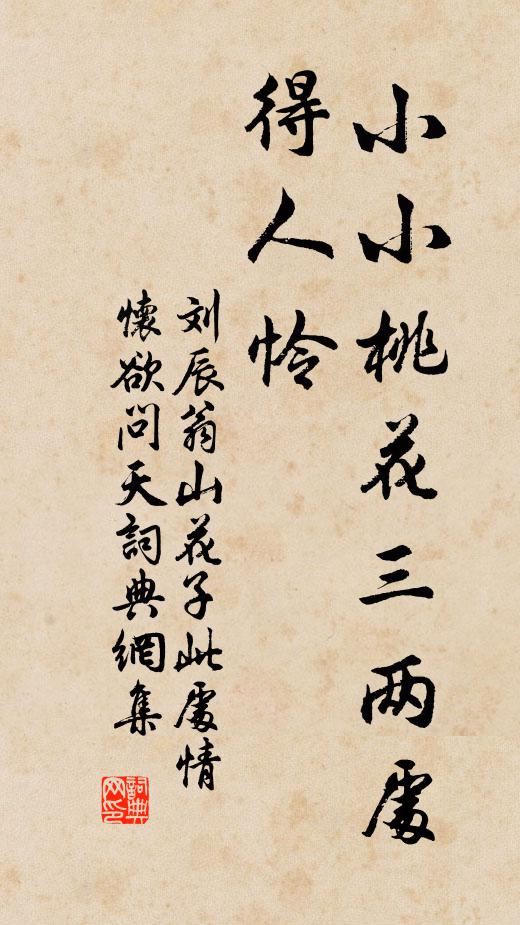 小小桃花三两處
得人怜
刘辰翁山花子此處情
懷欲問天詞典網集
詞典
网印